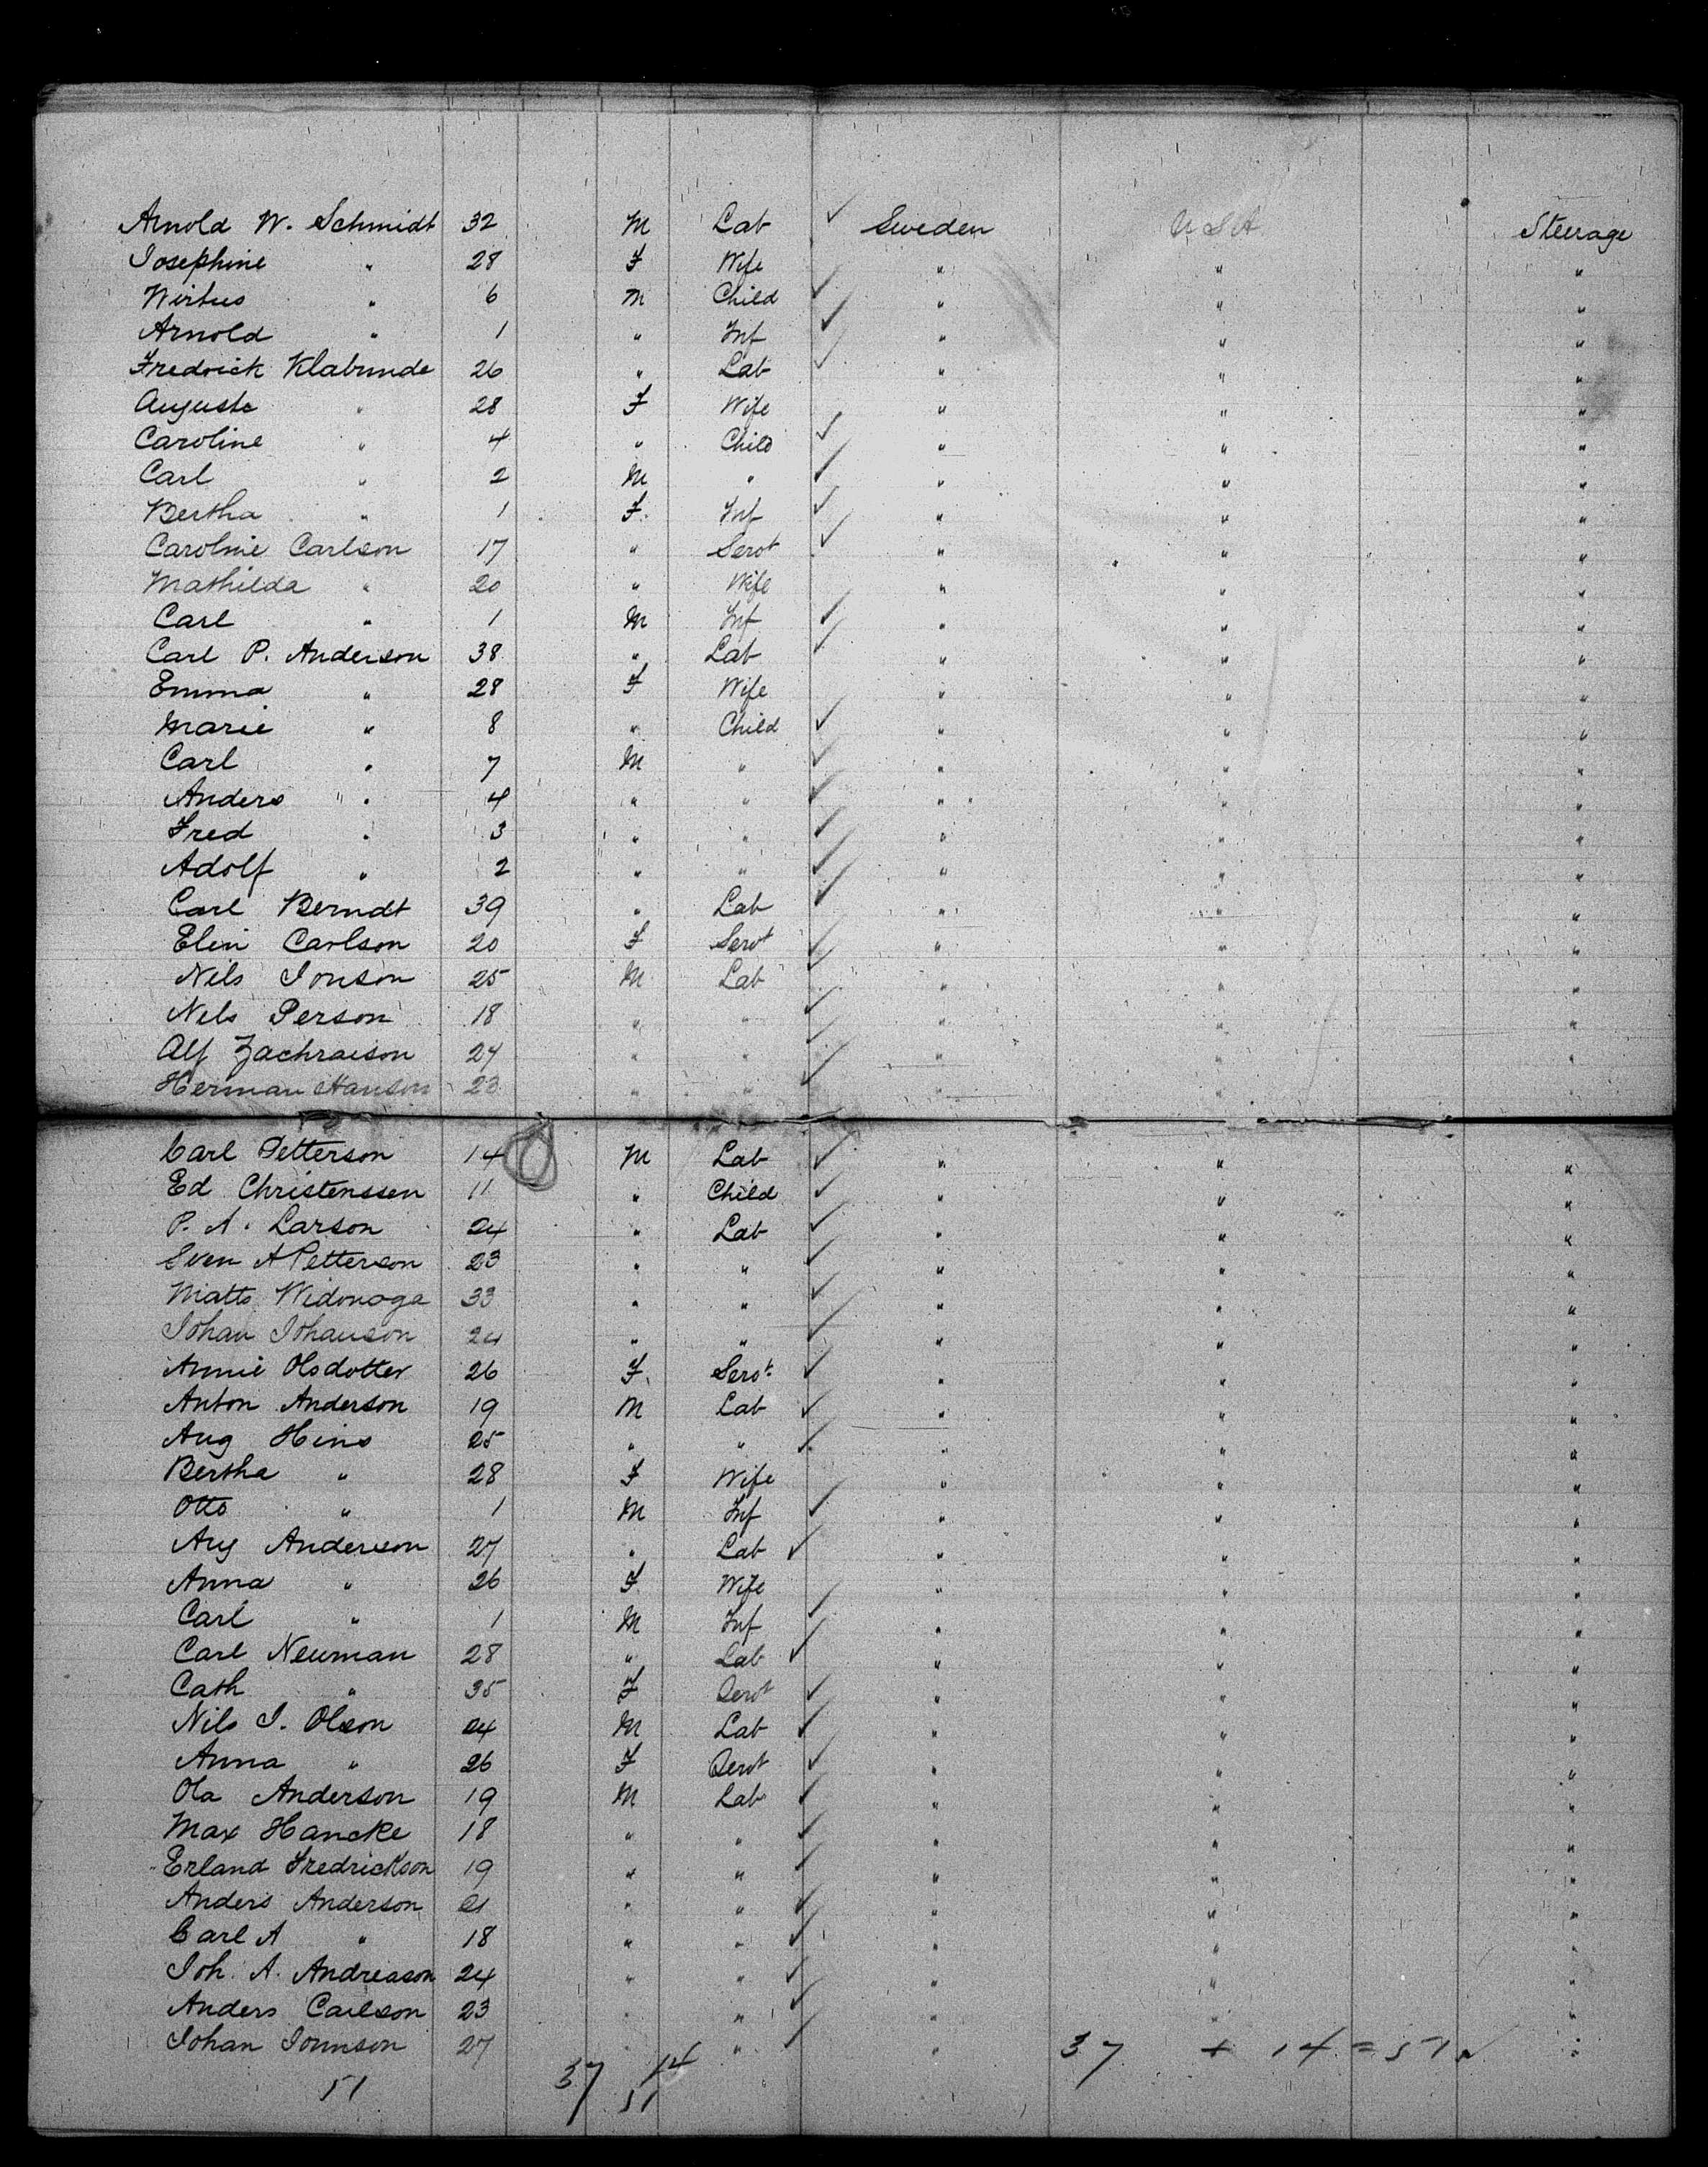 Arnold W. Schmidt 32 M Lab ✓ Sweden U S A Steerage
Josephine " 28 F Wife " " "
Wirtus " 6 M Child ✓ " " "
Arnold " 1 " Inf ✓ " " "
Fredrick Klabunde 26 " Lab ✓ " " "
Auguste " 28 F Wife " " "
Caroline " 4 " Child ✓ " " "
Carl " 2 M " ✓ " " "
Bertha " 1 F. Inf ✓ " " "
Caroline Carlson 17 " Servt ✓ " " "
Mathilda " 20 " Wife " " "
Carl " 1 M Inf ✓ " " "
Carl P. Anderson 38 " Lab ✓ " " "
Emma " 28 F Wife " " "
Marie " 8 " Child ✓ " " "
Carl " 7 M " ✓ " " "
Anders " 4 " " ✓ " " "
Fred " 3 " " ✓ " " "
Adolf " 2 " " ✓ " " "
Carl Berndt 39 " Lab ✓ " " "
Elin Carlson 20 F Servt ✓ " " "
Nils Jonson 25 M Lab ✓ " " "
Nels Person 18 " " ✓ " " "
Alf Zachraison 24 " " ✓ " " "
Herman Hanson 23 " " ✓ " " "
Carl Petterson 14 M Lab ✓ " " "
Ed Christenssen 11 " Child ✓ " " "
P. A. Larson 24 " Lab ✓ " " "
Sven A Petterson 23 " " ✓ " " "
Matts Widonoga 33 " " ✓ " " "
Johan Johanson 24 " " ✓ " " "
Annie Olsdotter 26 F. Servt. ✓ " " "
Anton Anderson 19 M Lab ✓ " " "
Aug Hins 25 " " ✓ " " "
Bertha " 28 F Wife " " "
Otto " 1 M Inf ✓ " " "
Aug Anderson 27 " Lab ✓ " " "
Anna " 26 F Wife " " "
Carl " 1 M Inf ✓ " " "
Carl Neuman 28 " Lab ✓ " " "
Cath " 35 F Servt ✓ " " "
Nils J. Olson 24 M Lab ✓ " " "
Anna " 26 F Servt ✓ " " "
Ola Anderson 19 M Lab ✓ " " "
Max Hancke 18 " " ✓ " " "
Erland Fredrickson 19 " " ✓ " " "
Anders Anderson 21 " " ✓ " " "
Carl A " 18 " " ✓ " " "
Joh. A. Andreason 24 " " ✓ " " "
Anders Carlson 23 " " ✓ " " "
Johan Jonnson 27 " " ✓ " 37 + 14 = 51 ✓ "
51 37 14
51